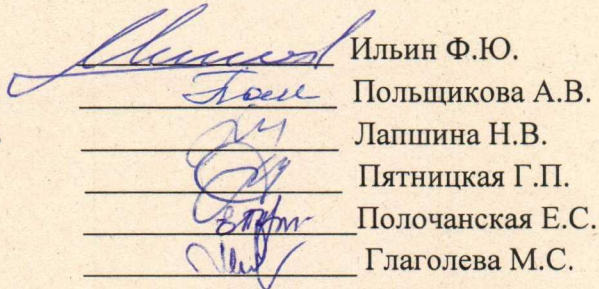 Ильин Ф.Ю.
Польщикова А.В.
Лапшина Н.В.
Пятницкая Г.П.
Полочанская Е.С.
Глаголева М.С.